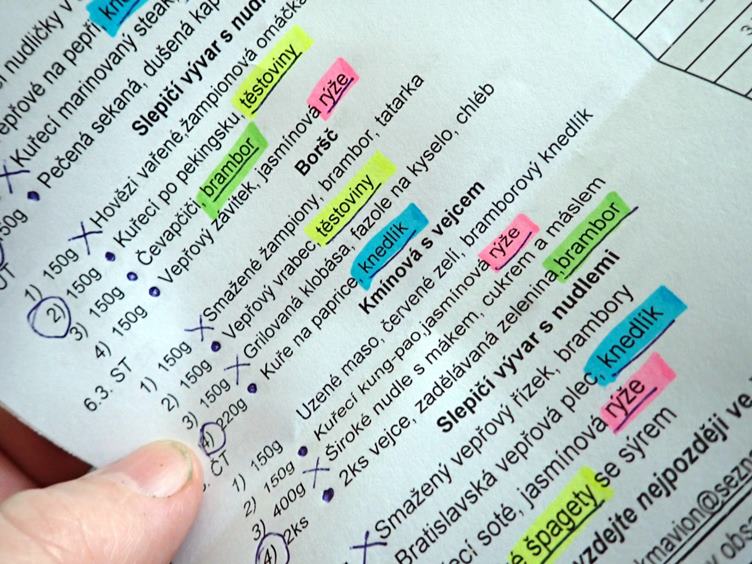 nudličky v
na pepři, kn
Kuřecí marinovaný steak
50g Pečená sekaná, dušená kap
Slepičí vývar s nud
1) 150g Hovězí vařené, žampionová omáčka, těstoviny
2) 150g Kuřecí po pekingsku, jasmínová rýže
3) 150g Čevapčiči brambor
4) 150g Vepřový závitek, jasmínová rýže
6.3. ST Boršč
1) 150g Smažené žampiony, brambor, tatarka
2) 150g Vepřový vrabec, těstoviny
3) 150g Grilovaná klobása, fazole na kyselo, chléb
4) 220g Kuře na paprice, knedlík
ČT Kmínová s vejcem
1) 150g Uzené maso, červené zelí, bramborový knedlík
2) 150g Kuřecí kung-pao, jasmínová rýže
3) 400g Široké nudle s mákem, cukrem a máslem
4) 2ks 2ks vejce, zadělávaná zelenina, brambor
Slepičí vývar s nudlemi
Smažený vepřový řízek, brambory
Bratislavská vepřová plec, knedlík
soté, jasmínová rýže
špagety se sýrem
vzdejte nejpozději ve
kmavion@sezn